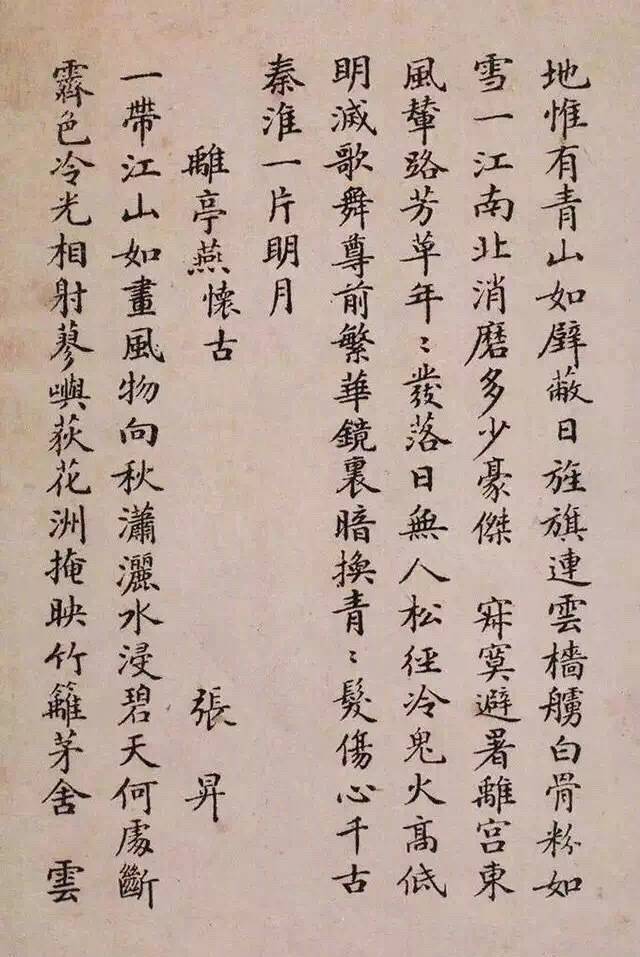 地惟有青山如壁蔽日旌旗連雲檣艣白骨粉如
雪一江南北消磨多少豪傑 寂寞避暑離宮東
風輦路芳草年〻發落日無人松徑冷鬼火高低
明滅歌舞尊前繁華鏡裏暗換青〻髮傷心千古
秦淮一片明月
離亭燕懷古 張昇
一帶江山如畫風物向秋瀟灑水浸碧天何處斷
霽色冷光相射蓼嶼荻花洲掩映竹籬茅舍 雲